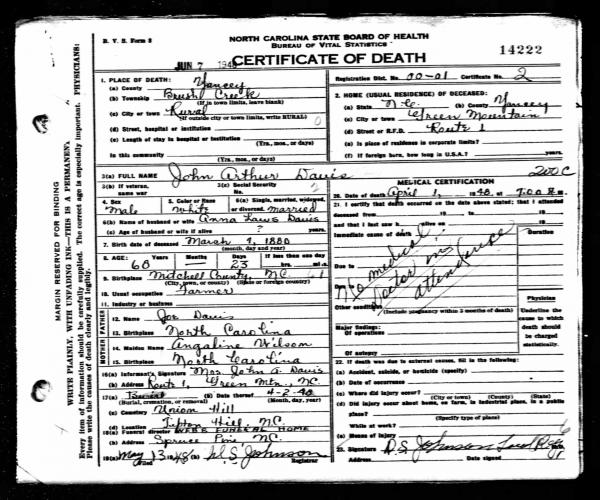 R. V. S. Form 8
NORTH CAROLINA STATE BOARD OF HEALTH
BUREAU OF VITAL STATISTICS
CERTIFICATE OF DEATH
14222
JUN 7
Registration Dist. No. 00-01 Certificate No. 2
MARGIN RESERVED FOR BINDING
WRITE PLAINLY, WITH UNFADING INK—THIS IS A PERMANENT
Every item of information should be carefully supplied. The correct age is especially important. PHYSICIANS:
Please write the causes of death clearly and legibly.
1. PLACE OF DEATH:
(a) County Yancey
(b) Township Brush Creek
(If in town limits, leave blank)
(c) City or town Rural
(If outside city or town limits, write RURAL)
(d) Street, hospital or institution
(e) Length of stay in hospital or institution
(Yrs., mos., or days)
In this community
(Yrs., mos., or days)
2. HOME (USUAL RESIDENCE) OF DECEASED:
(a) State N.C. (b) County Yancey
(c) City or town Green Mountain
(d) Street or R.F.D. Route 1
(e) Is place of residence in corporate limits?
(f) If foreign born, how long in U.S.A.? years.
3(a) FULL NAME John Arthur Davis
200C
3(b) If veteran, name war
3(c) Social Security No.
4. Sex Male
5. Color or Race White
6(a) Single, married, widowed, or divorced. Married
6(b) Name of husband or wife Anna Laws Davis
(c) Age of husband or wife if alive ? years.
7. Birth date of deceased March 9, 1880
(month, day and year)
8. AGE: Years 68 Months Days 23 If less than one day hrs. m.
9. Birthplace Mitchell County, N.C.
(City, town, or county) (State or foreign country)
10. Usual occupation Farmer
11. Industry or business
FATHER
12. Name Joe Davis
13. Birthplace North Carolina
MOTHER
14. Maiden Name Angaline Wilson
15. Birthplace North Carolina
16(a) Informant's Signature Mrs. John A. Davis
(b) Address Route 1, Green Mtn., N.C.
17(a) Burial (b) Date thereof 4-2-48
(Burial, cremation, or removal) (Month, day, year)
(c) Cemetery Union Hill
Location Tipton Hill, N.C.
18(a) Funeral director WEBB FUNERAL HOME
(b) Address Spruce Pine, N.C.
19(a) May 13 1948 (b) D. S. Johnson
Filed Registrar
MEDICAL CERTIFICATION
20. Date of death April 1, 1948, at 7:00 P.m.
21. I certify that death occurred on the date above stated; that I attended
deceased from 19 to 19
and that I last saw h alive on 19
Immediate cause of death
Duration
Due to
Due to
Other conditions
(Include pregnancy within 3 months of death)
No medical doctor in attendance
Major findings:
Of operations
Of autopsy
Physician
Underline the cause to which death should be charged statistically.
22. If death was due to external causes, fill in the following:
(a) Accident, suicide, or homicide (specify)
(b) Date of occurrence
(c) Where did injury occur?
(City or town) (County) (State)
(d) Did injury occur about home, on farm, in industrial place, in a public place?
(Specify type of place)
While at work?
(e) Means of injury
23. Signature D. S. Johnson Local Reg.
Address Date signed